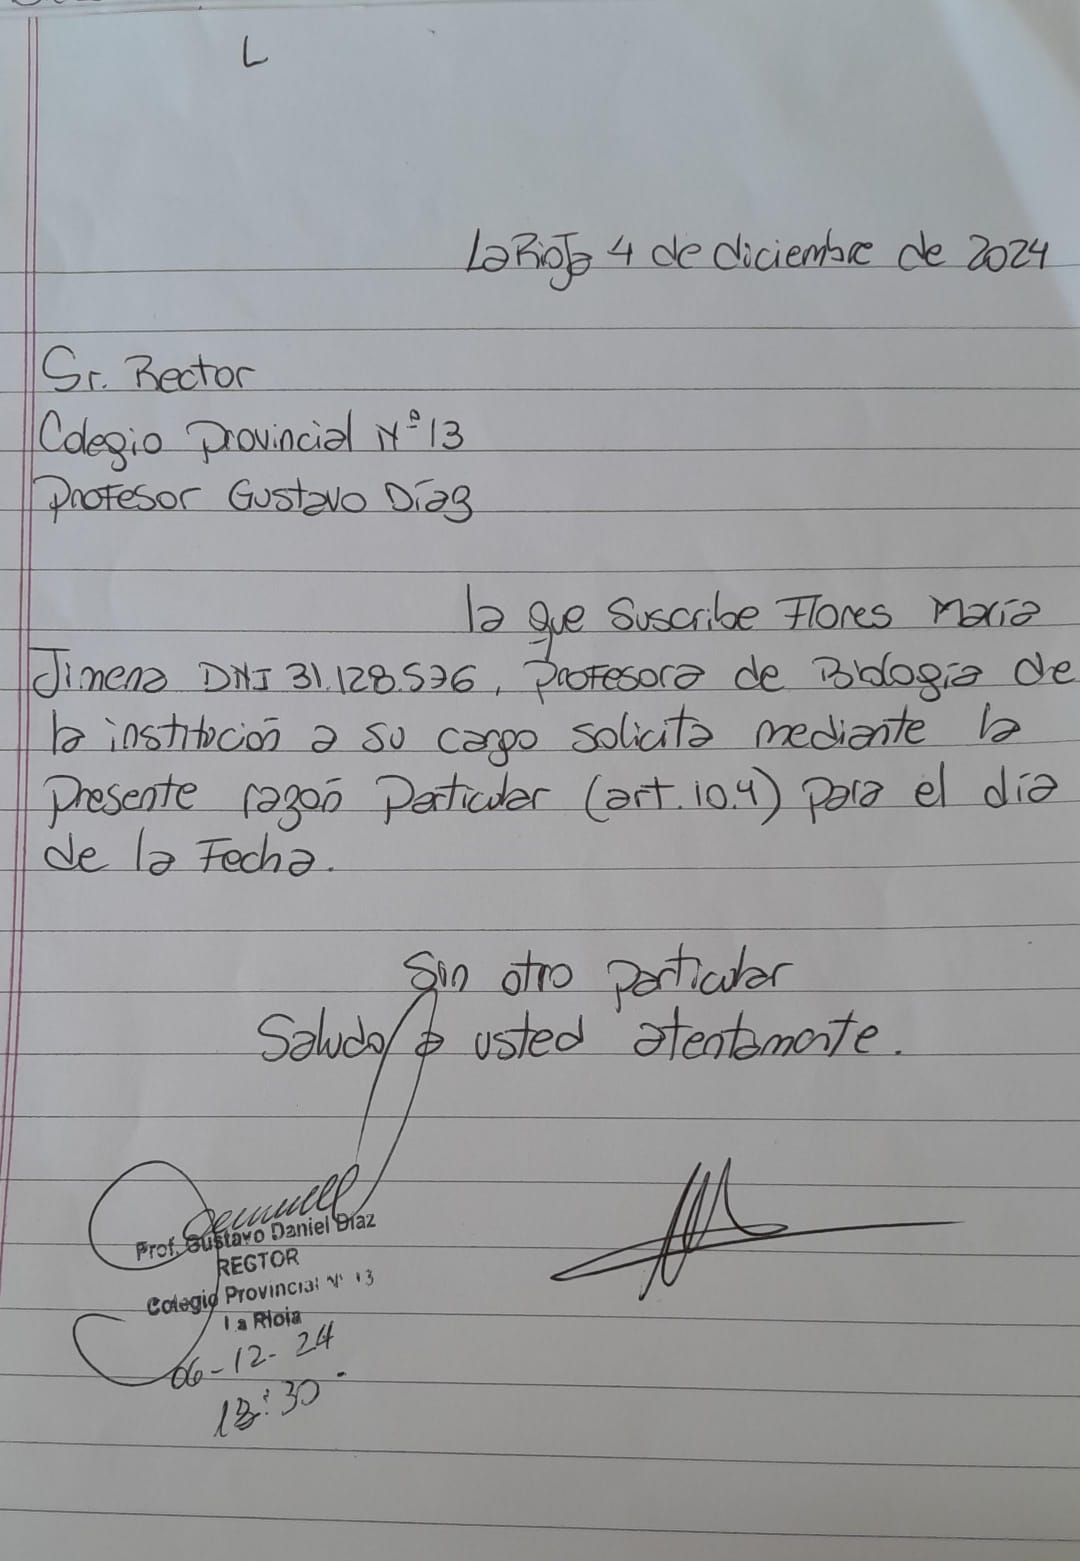 L
La Rioja 4 de diciembre de 2024
Sr. Rector
Colegio Provincial Nº 13
Profesor Gustavo Díaz
la que suscribe Flores María
Jimena DNI 31.128.536, Profesora de Biología de
la institución a su cargo solicita mediante la
Presente razón Particular (art. 10.4) para el día
de la Fecha.
Sin otro particular
Saludo a usted atentamente.
Prof. Gustavo Daniel Díaz
RECTOR
Colegio Provincial Nº 13
La Rioja
06-12-24
18:30.